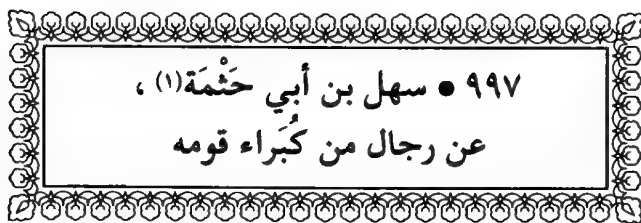 ٩٩٧ ● سهل بن أبي حَثْمَة(١) ،
عن رجال من كُبَراء قومه